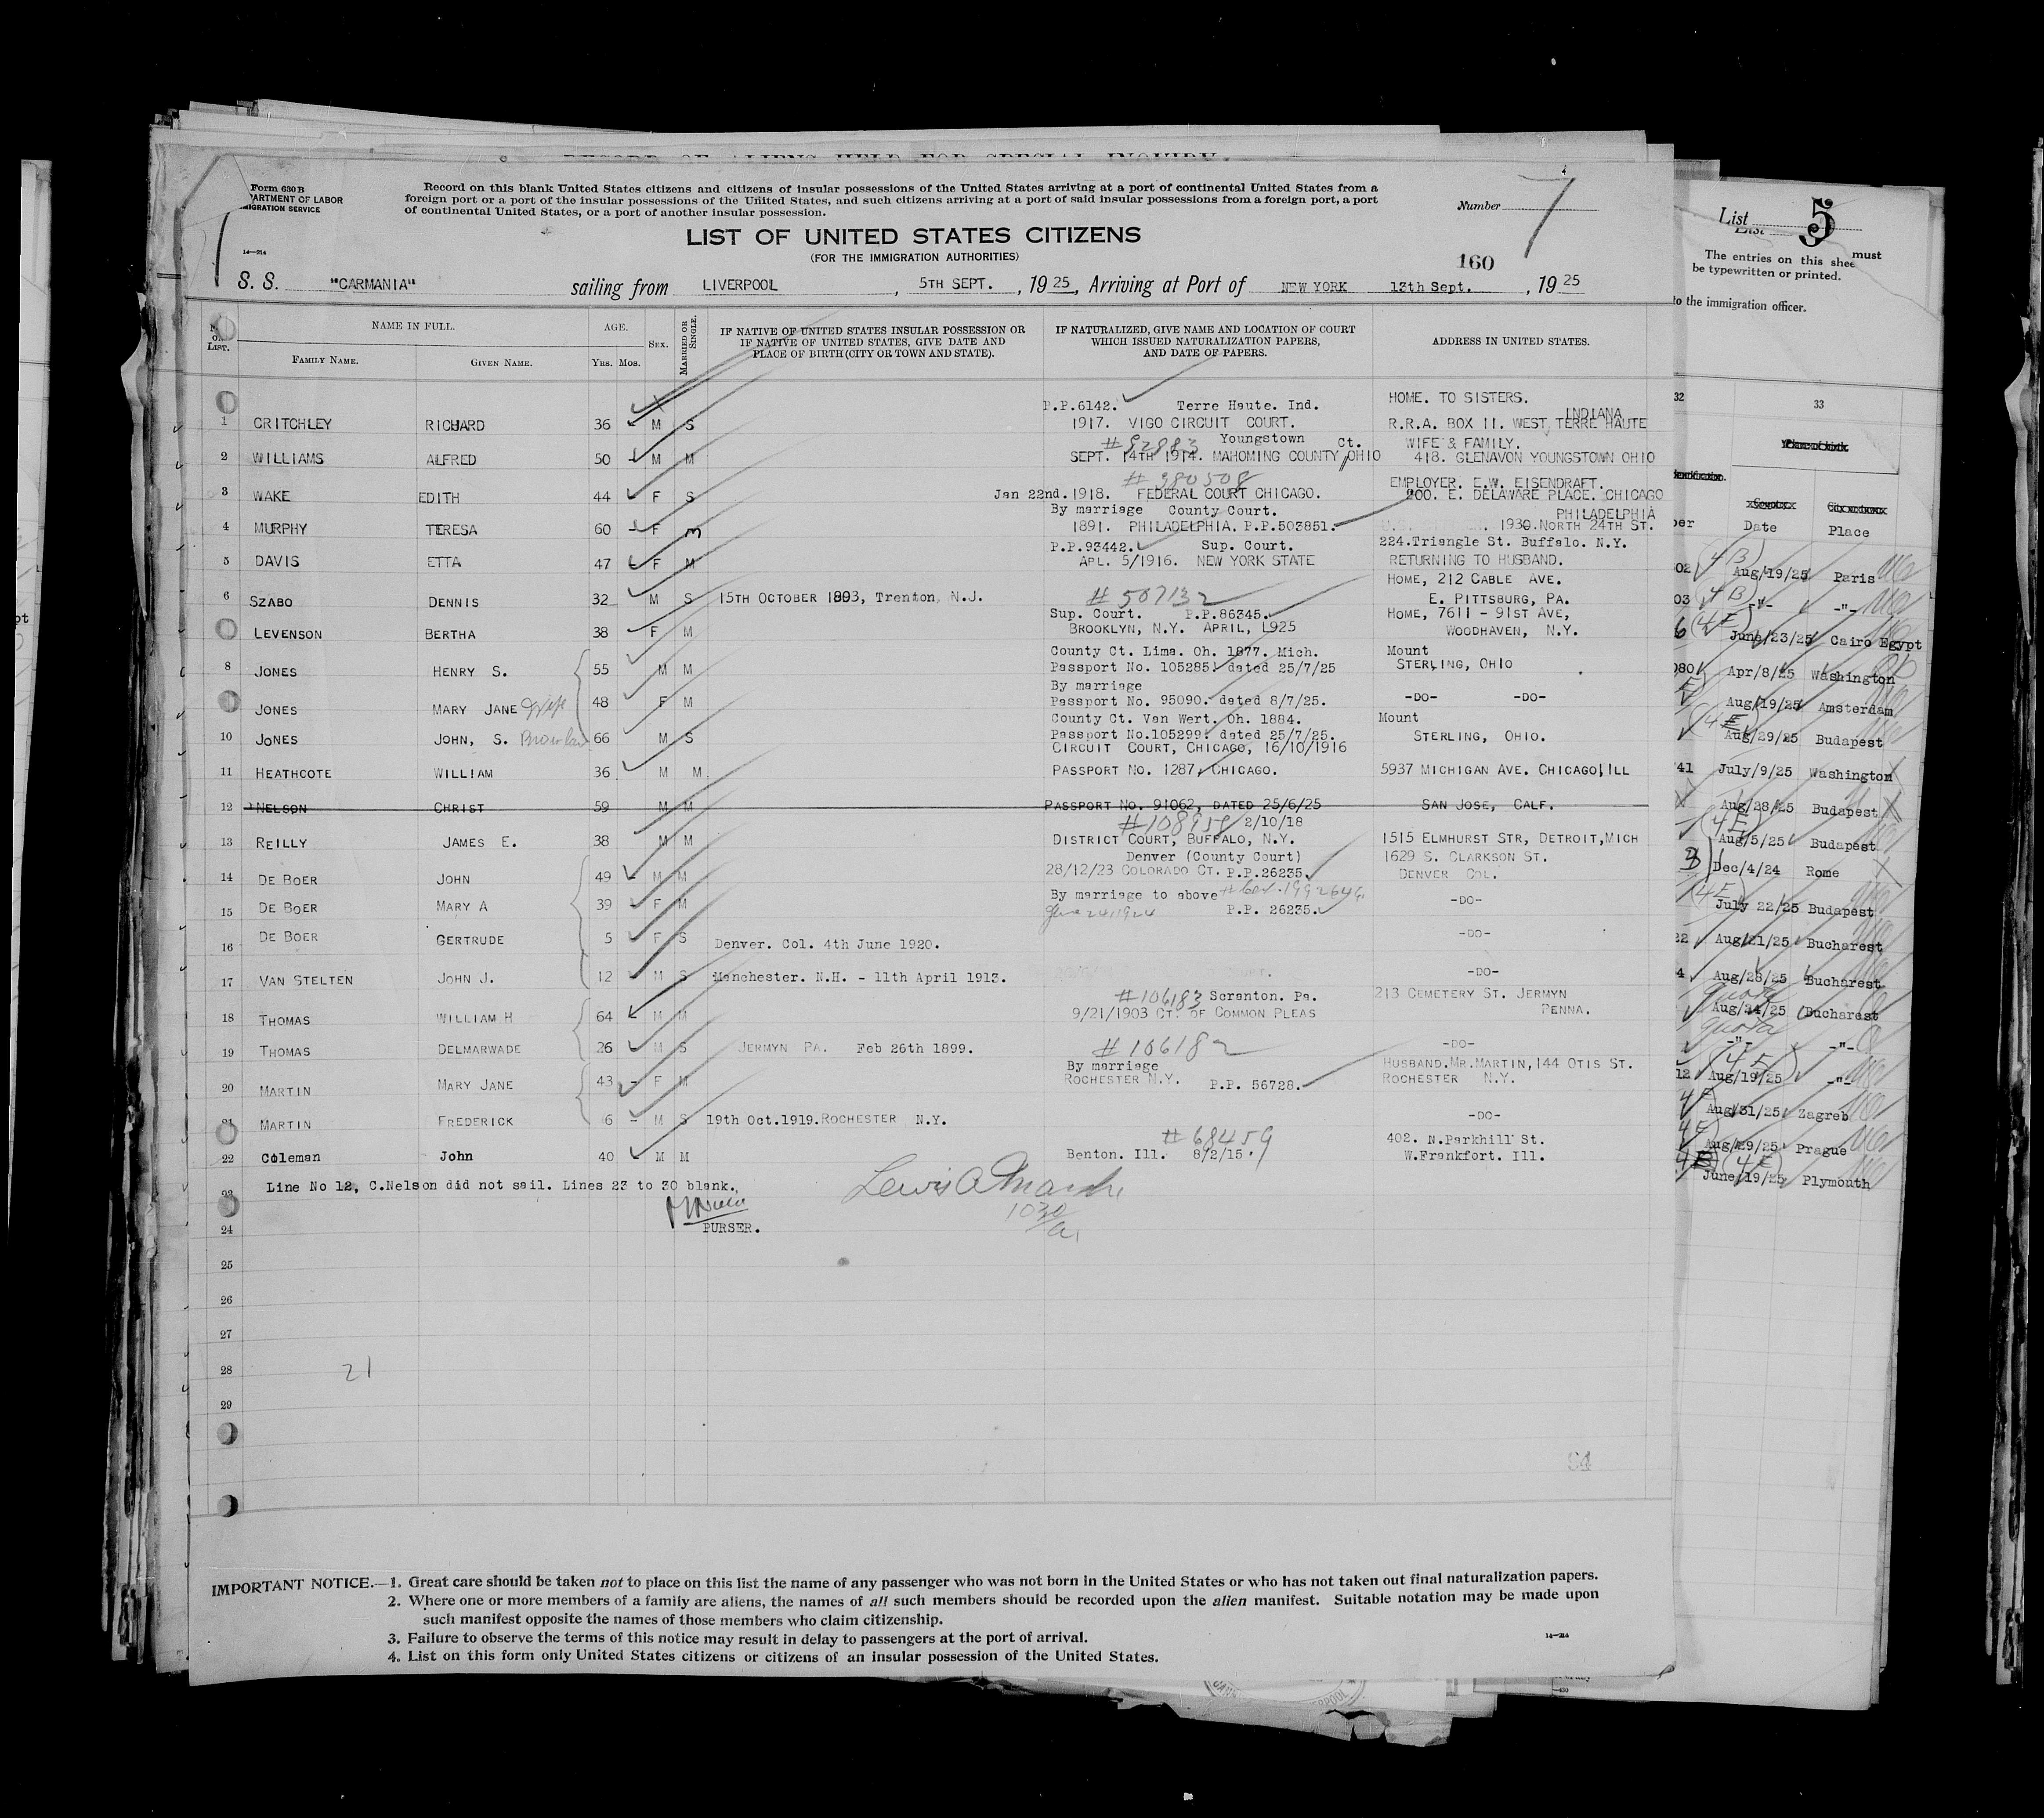 Form 630 B
DEPARTMENT OF LABOR
IMMIGRATION SERVICE
Record on this blank United States citizens and citizens of insular possessions of the United States arriving at a port of continental United States from a
foreign port or a port of the insular possessions of the United States, and such citizens arriving at a port of said insular possessions from a foreign port, a port
of continental United States, or a port of another insular possession.
Number 7
14—214
LIST OF UNITED STATES CITIZENS
(FOR THE IMMIGRATION AUTHORITIES)
160
S. S. "CARMANIA" sailing from LIVERPOOL, 5TH SEPT., 1925, Arriving at Port of NEW YORK 13th Sept., 1925
No. on List.
NAME IN FULL.
Family Name.
Given Name.
AGE.
Yrs. Mos.
Sex.
Married or Single.
IF NATIVE OF UNITED STATES INSULAR POSSESSION OR
IF NATIVE OF UNITED STATES, GIVE DATE AND
PLACE OF BIRTH (CITY OR TOWN AND STATE).
IF NATURALIZED, GIVE NAME AND LOCATION OF COURT
WHICH ISSUED NATURALIZATION PAPERS,
AND DATE OF PAPERS.
ADDRESS IN UNITED STATES.
P.P.6142. Terre Haute. Ind. HOME. TO SISTERS.
INDIANA
1 CRITCHLEY RICHARD 36 M S 1917. VIGO CIRCUIT COURT. R.R.A. BOX 11. WEST TERRE HAUTE
#92983 Youngstown Ct. WIFE & FAMILY.
2 WILLIAMS ALFRED 50 M M SEPT. 14TH 1914. MAHOMING COUNTY OHIO 418. GLENAVON YOUNGSTOWN OHIO
#980508 EMPLOYER. E.W. EISENDRAFT.
3 WAKE EDITH 44 F S Jan 22nd. 1918. FEDERAL COURT CHICAGO. 200. E. DELAWARE PLACE. CHICAGO
By marriage County Court. PHILADELPHIA
4 MURPHY TERESA 60 F M 1891. PHILADELPHIA. P.P.503851. 1930. NORTH 24TH ST.
P.P.93442. Sup. Court. 224.Triangle St. Buffalo. N.Y.
5 DAVIS ETTA 47 F M APL. 5/1916. NEW YORK STATE RETURNING TO HUSBAND.
HOME, 212 CABLE AVE.
6 SZABO DENNIS 32 M S 15TH OCTOBER 1893, Trenton, N.J. #507132 E. PITTSBURG, PA.
Sup. Court. P.P.86345. HOME, 7611 - 91ST AVE,
LEVENSON BERTHA 38 F M BROOKLYN, N.Y. APRIL, 1925 WOODHAVEN, N.Y.
County Ct. Lima. Oh. 1877. Mich. Mount
8 JONES HENRY S. 55 M M Passport No. 105285. dated 25/7/25 STERLING, OHIO
By marriage
JONES MARY JANE Wife 48 F M Passport No. 95090. dated 8/7/25. -DO- -DO-
County Ct. Van Wert. Oh. 1884. Mount
10 JONES JOHN, S. 66 M S Passport No.105299. dated 25/7/25. STERLING, OHIO.
CIRCUIT COURT, CHICAGO, 16/10/1916
11 HEATHCOTE WILLIAM 36 M M PASSPORT NO. 1287, CHICAGO. 5937 MICHIGAN AVE. CHICAGO, ILL
12 NELSON CHRIST 59 M M PASSPORT NO. 91062, DATED 25/6/25 SAN JOSE, CALF.
2/10/18
13 REILLY JAMES E. 38 M M DISTRICT COURT, BUFFALO, N.Y. 1515 ELMHURST STR, DETROIT, MICH
Denver (County Court) 1629 S. CLARKSON ST.
14 DE BOER JOHN 49 M M 28/12/23 COLORADO CT. P.P.26235. DENVER COL.
By marriage to above
15 DE BOER MARY A 39 F M June 24 1924 P.P. 26235. -DO-
16 DE BOER GERTRUDE 5 F S Denver. Col. 4th June 1920. -DO-
17 VAN STELTEN JOHN J. 12 M S Manchester. N.H. - 11th April 1913. -DO-
#106183 Scranton. Pa. 213 CEMETERY ST. JERMYN
18 THOMAS WILLIAM H 64 M M 9/21/1903 CT. OF COMMON PLEAS PENNA.
19 THOMAS DELMARWADE 26 M S JERMYN PA. Feb 26th 1899. #106182 -DO-
By marriage HUSBAND.MR.MARTIN,144 OTIS ST.
20 MARTIN MARY JANE 43 - F M ROCHESTER N.Y. P.P. 56728. ROCHESTER N.Y.
21 MARTIN FREDERICK 6 - M S 19th Oct.1919. ROCHESTER N.Y. -DO-
#68459 402. N.Parkhill St.
22 Coleman John 40 M M Benton. Ill. 8/2/15. W.Frankfort. Ill.
23 Line No 12, C.Nelson did not sail. Lines 23 to 30 blank.
PURSER.
24
25
26
27
28
21
29
94
IMPORTANT NOTICE.—1. Great care should be taken not to place on this list the name of any passenger who was not born in the United States or who has not taken out final naturalization papers.
2. Where one or more members of a family are aliens, the names of all such members should be recorded upon the alien manifest. Suitable notation may be made upon
such manifest opposite the names of those members who claim citizenship.
3. Failure to observe the terms of this notice may result in delay to passengers at the port of arrival.
4. List on this form only United States citizens or citizens of an insular possession of the United States.
14—214
List 5
The entries on this sheet must
be typewritten or printed.
to the immigration officer.
32 33
Date Place
Aug/19/25 Paris
-"- -"-
June/23/25 Cairo Egypt
Apr/8/25 Washington
Aug/19/25 Amsterdam
Aug/29/25 Budapest
July/9/25 Washington
Aug/28/25 Budapest
Aug/5/25 Budapest
Dec/4/24 Rome
July 22/25 Budapest
Aug/21/25 Bucharest
Aug/28/25 Bucharest
quota
Aug/24/25 Bucharest
quota
-"- -"-
Aug/19/25 -"-
Aug/31/25 Zagreb
Aug/29/25 Prague
June/19/25 Plymouth